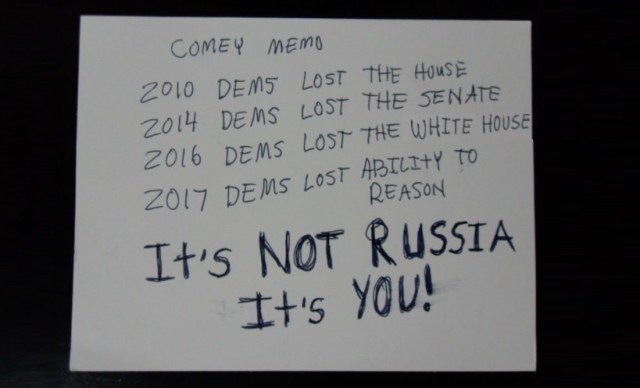 COMEY MEMO
2010 DEMS LOST THE HOUSE
2014 DEMS LOST THE SENATE
2016 DEMS LOST THE WHITE HOUSE
2017 DEMS LOST ABILITY TO
REASON
It's NOT RUSSIA
It's YOU!